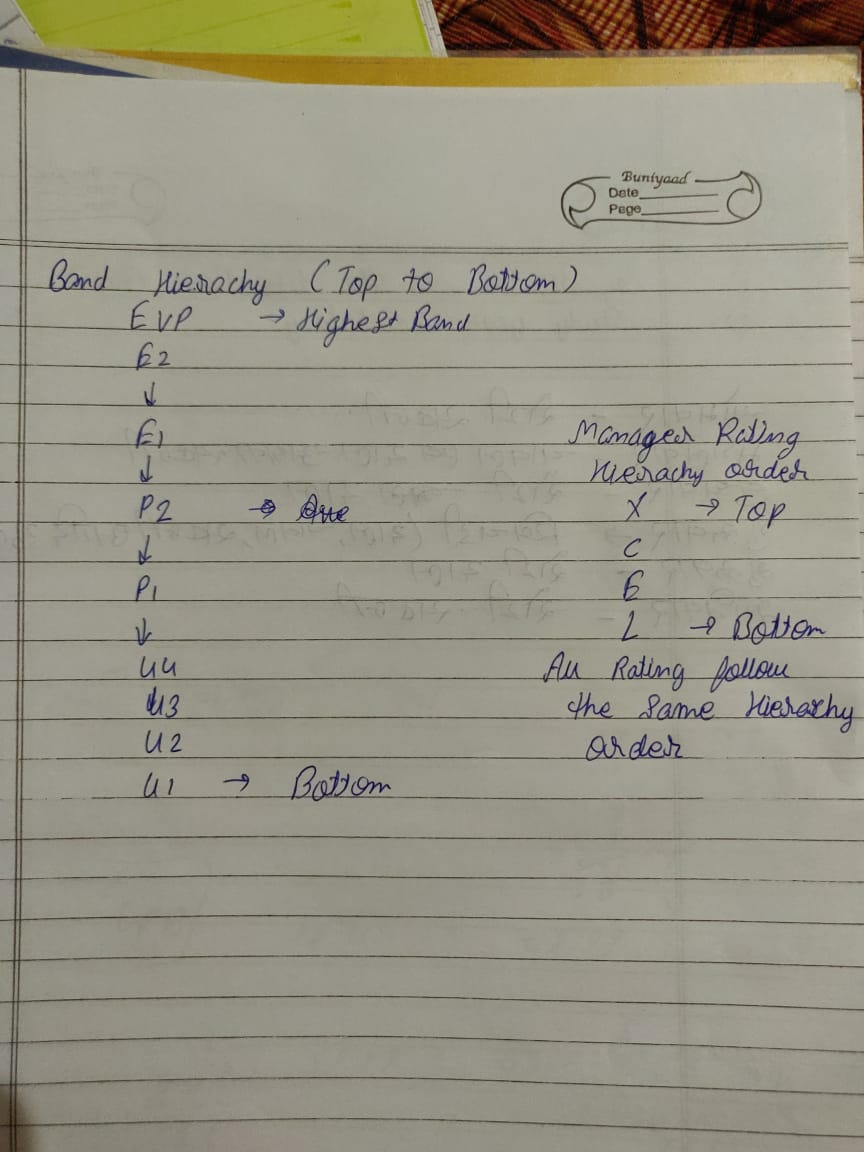 Buniyaad
Date
Page
Band Hierachy (Top to Bottom)
EVP → Highest Band
E2
↓
E1
↓
P2
↓
P1
↓
U4
U3
U2
U1 → Bottom
Manager Rating
Hierachy order
X → Top
C
E
L → Bottom
All Rating follow
the Same Hierarchy
order